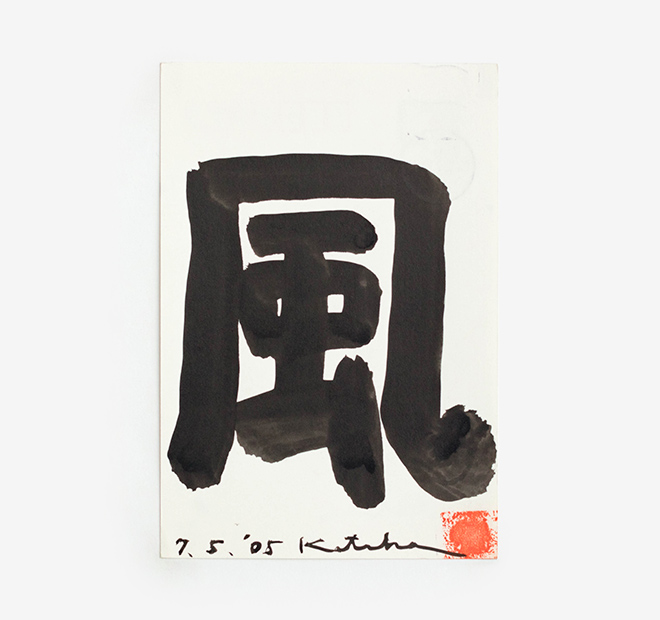 風
7. 5. '05